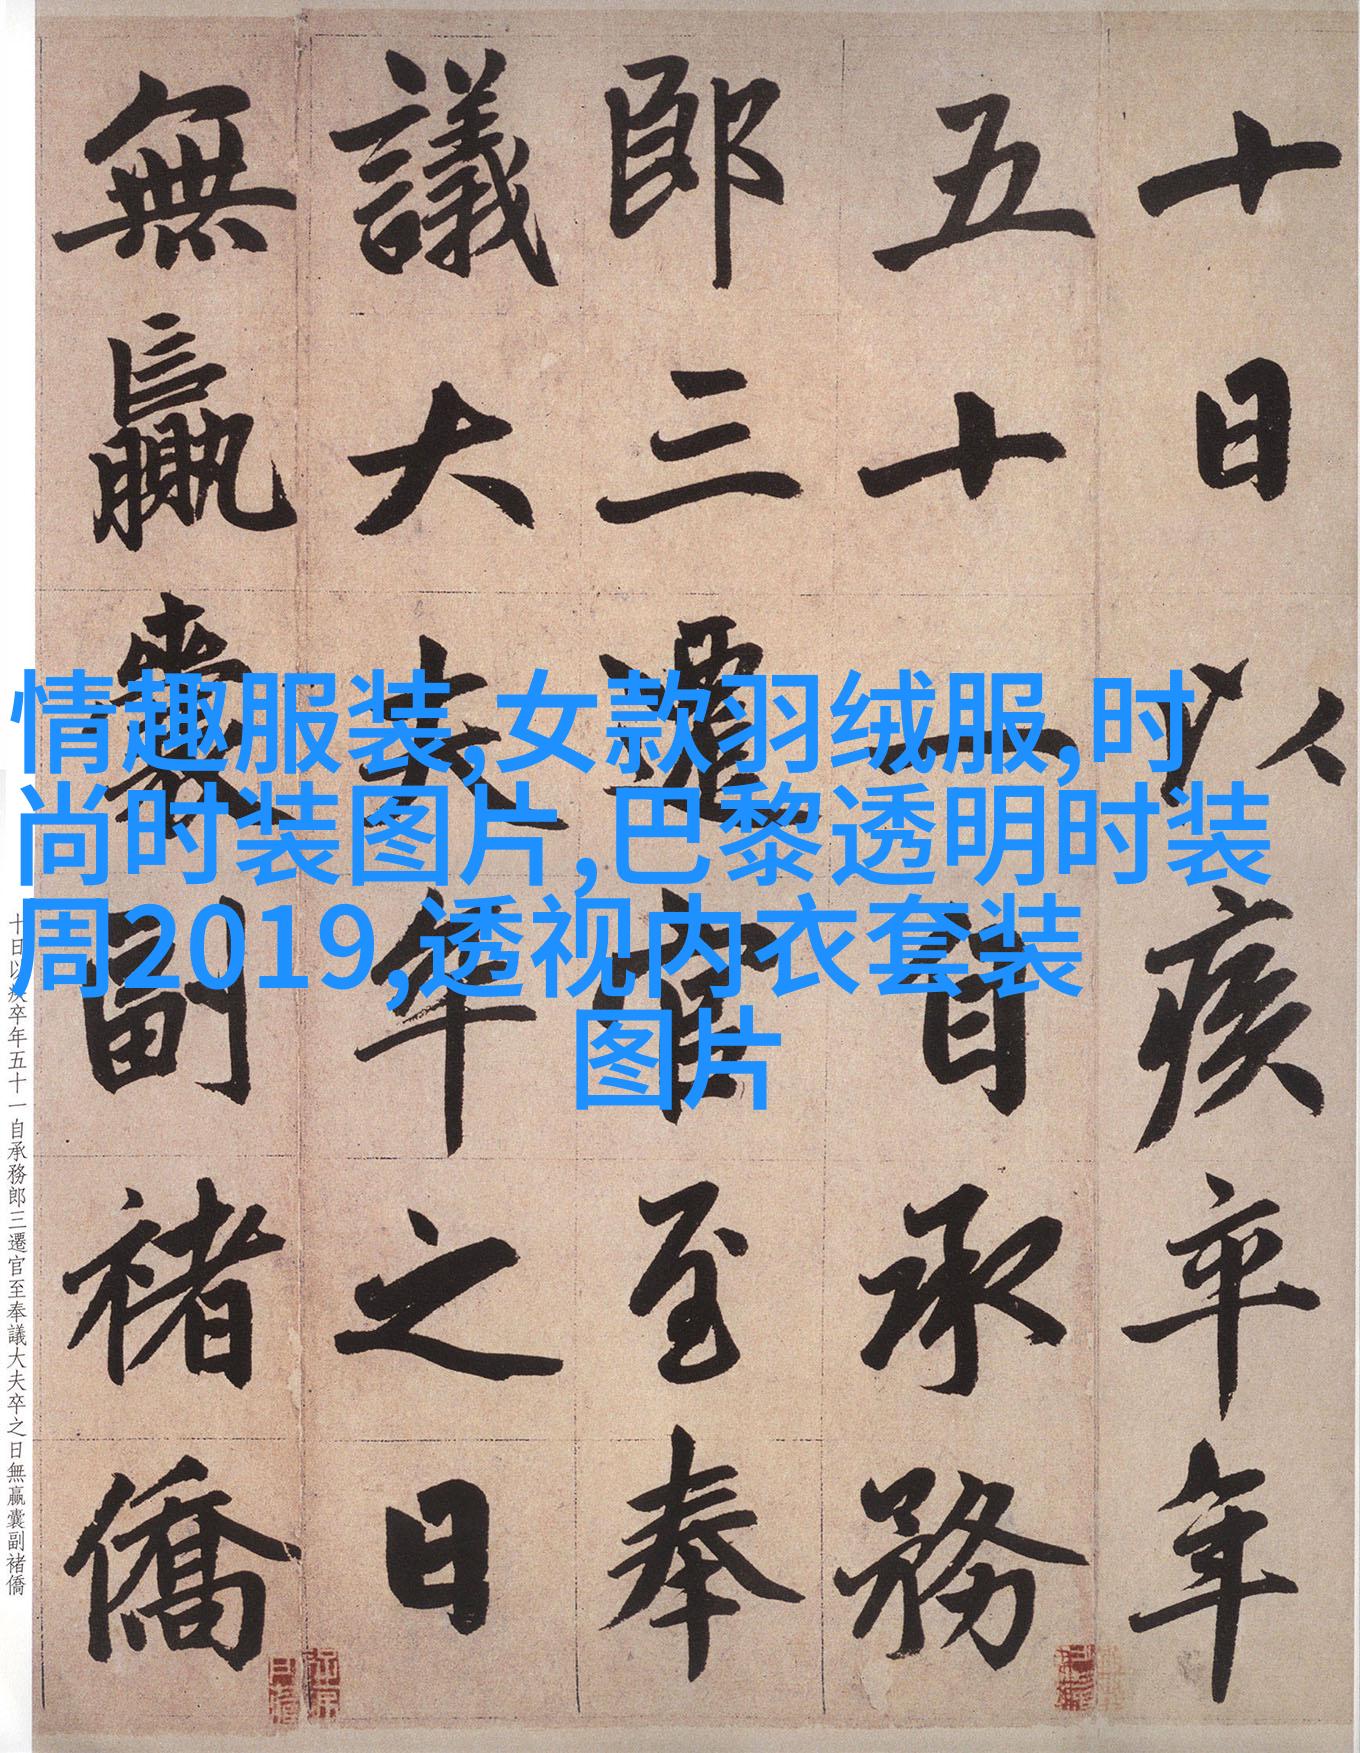 十日以疾卒年
五十一自承務
郎三遷官至奉
議大夫卒之日
無贏囊副褚僑
情趣服装,女款羽绒服,时
尚时装图片,巴黎透明时装
周2019,透视内衣套装
图片
十日以疾卒年五十一自承務郎三遷官至奉議大夫卒之日無贏囊副褚僑